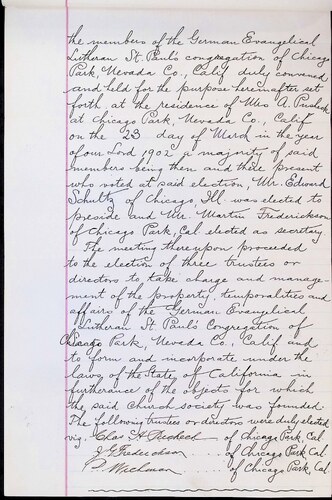 the members of the German Evangelical
Lutheran St. Paul's congregation of Chicago
Park, Nevada Co., Calif. duly convened
and held for the purpose hereinafter set
forth at the residence of Wm A.
at Chicago Park, Nevada Co., Calif.
on the 23 day of March in the year
of our Lord 1902 a majority of said
members being then and there present
who voted at said election, Mr. Edward
Schultz of Chicago, Ill. was elected to
preside and Mr. Martin Frederickson
of Chicago Park, Cal. elected as secretary.
The meeting thereupon proceeded
to the election of three trustees or
directors to take charge and manage-
ment of the property, temporalities and
affairs of the German Evangelical
Lutheran St. Paul's Congregation of
Chicago Park, Nevada Co., Calif. and
to form and incorporate under the
laws of the State of California in
furtherance of the objects for which
the said Church society was founded.
The following trustees or directors were duly elected
viz. Chas H. of Chicago Park, Cal.
Frederickson of Chicago Park Cal.
of Chicago Park, Cal.